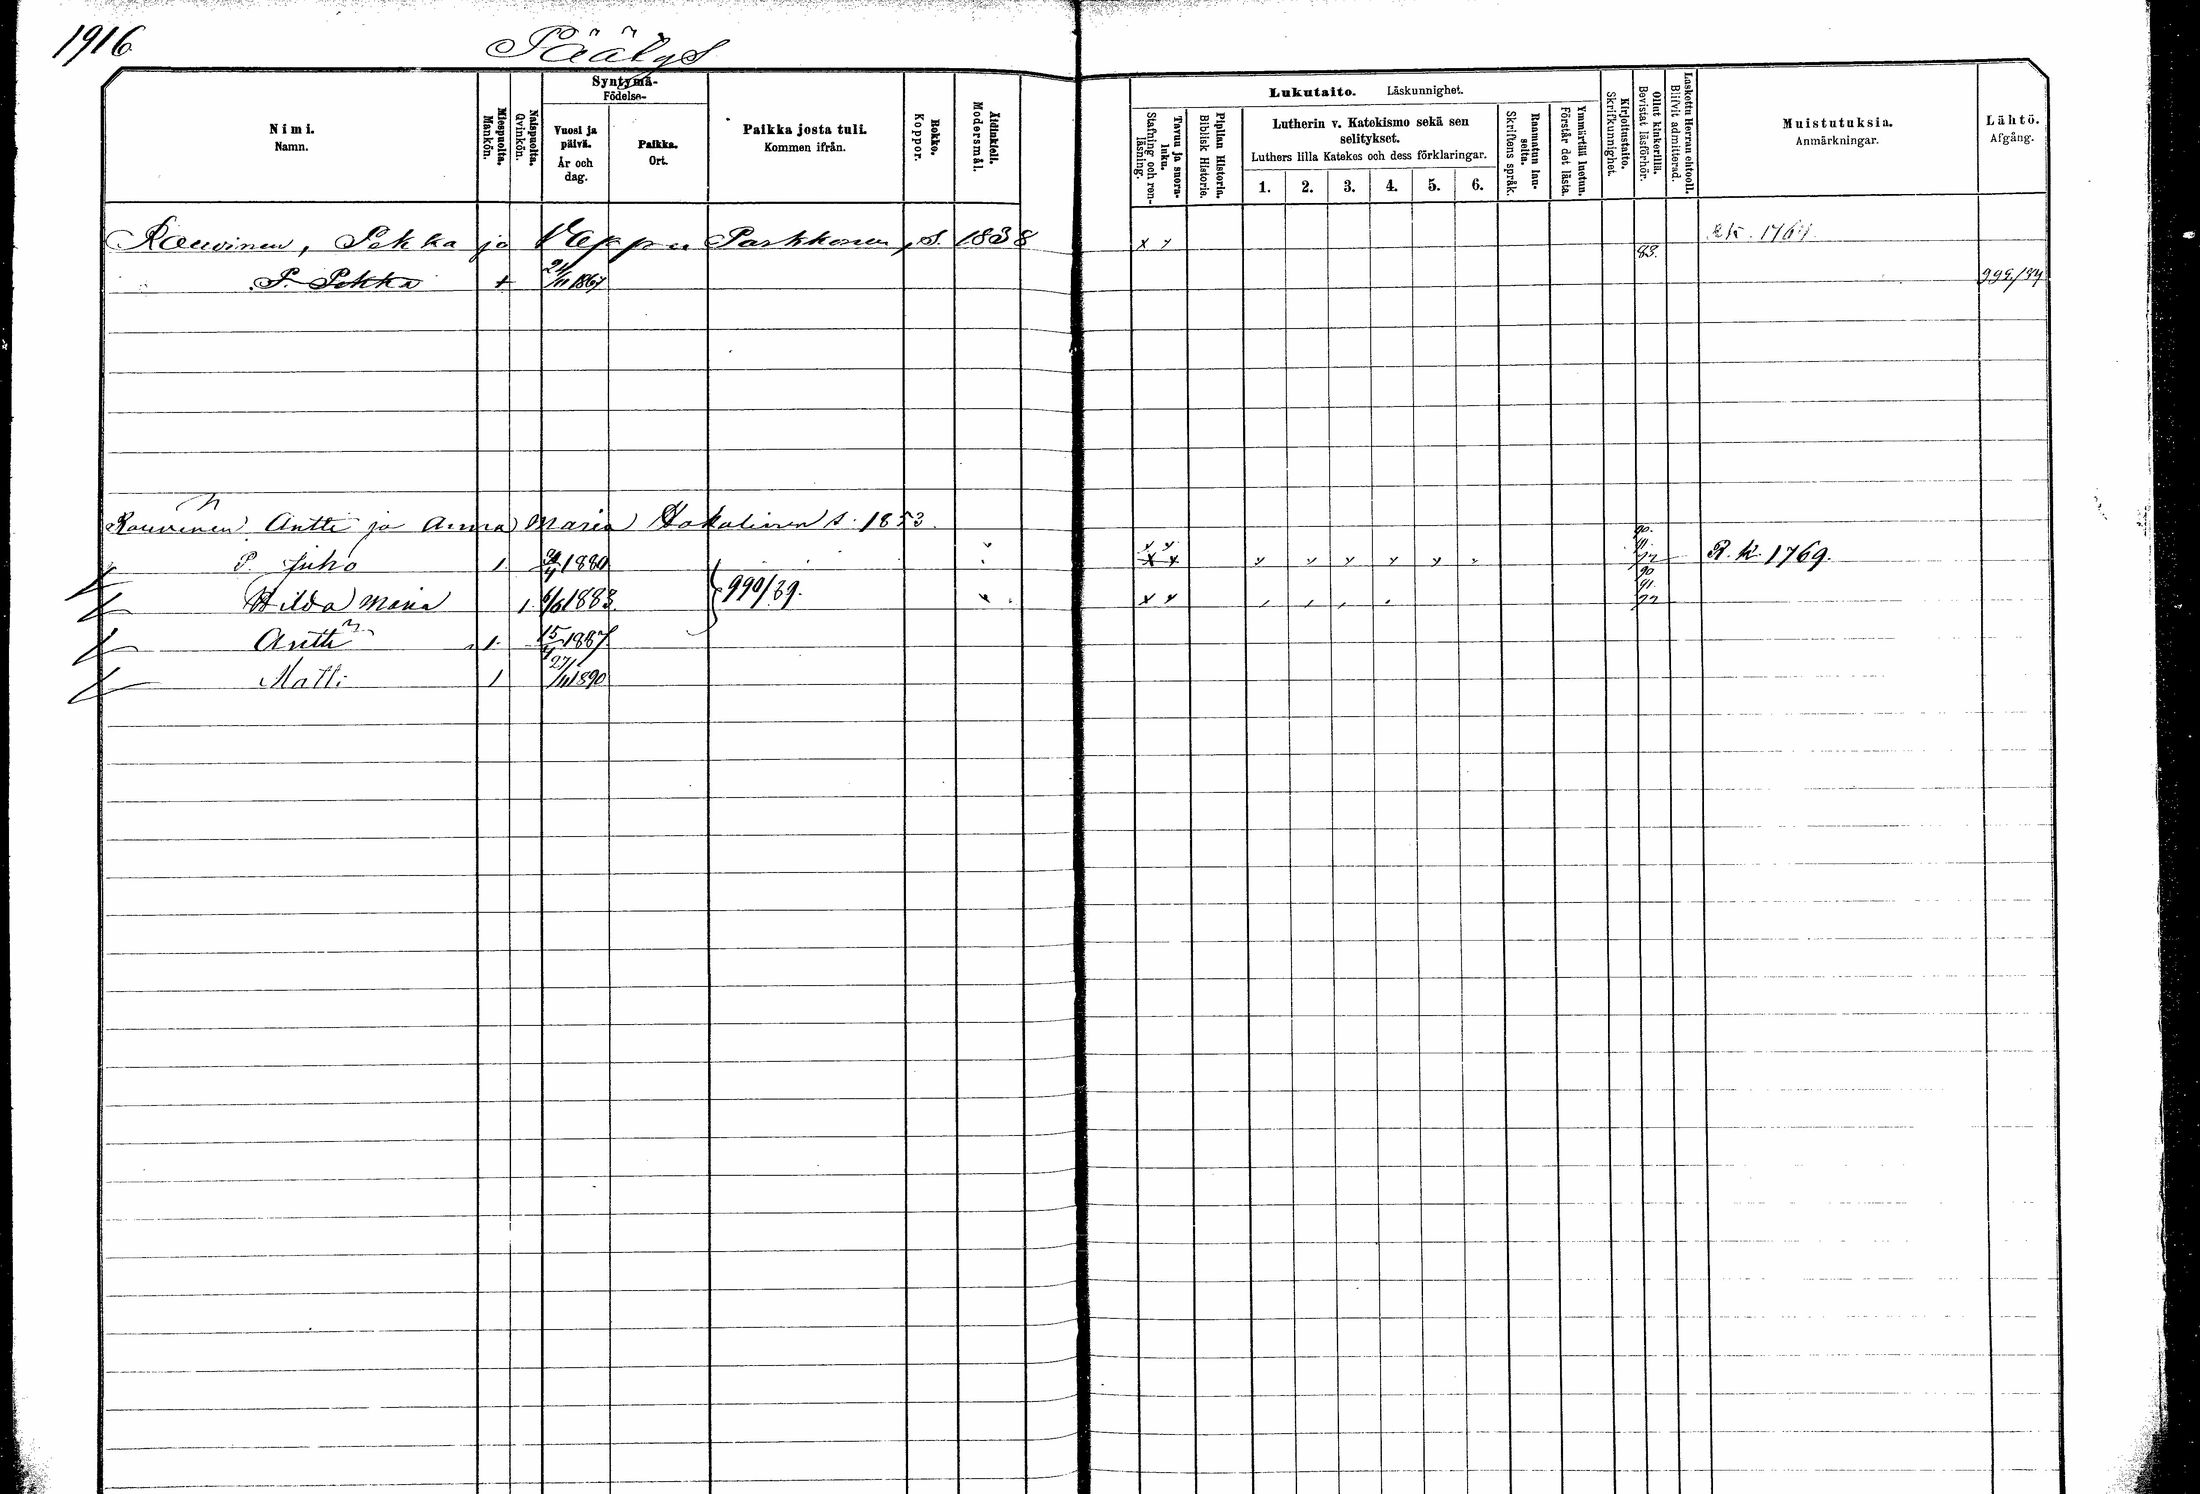 1916
Päälys
Nimi.
Namn.
Miespuolta.
Mankön.
Naispuolta.
Qvinkön.
Syntymä-
Födelse-
Vuosi ja päivä.
År och dag.
Paikka.
Ort.
Paikka josta tuli.
Kommen ifrån.
Rokko.
Koppor.
Äidinkieli.
Modersmål.
Lukutaito. Läskunnighet.
Tavuu ja suora-luku.
Stafning och ren-läsning.
Piplian Historia.
Biblisk Historie.
Lutherin v. Katekismo sekä sen
selitykset.
Luthers lilla Katekes och dess förklaringar.
1. 2. 3. 4. 5. 6.
Raamatun lau-seita.
Skriftens språk.
Ymmärtää luetun.
Förstår det lästa.
Kirjoitustaito.
Skrifkunnighet.
Ollut kinkerillä.
Bevistat läsförhör.
Laskettu Herran ehtooll.
Blifvit admitterad.
Muistutuksia.
Anmärkningar.
Lähtö.
Afgång.
Rauvinen, Pekka ja Vappu Parkkonen, s. 1838 x x 83. 1769.
P. Pekka + 1867
Rouvinen Antti ja Anna Maria s. 1853.
P. Juho 1 1880 x x R. K. 1769.
Hilda Maria 1 6/6 1883. 990/89. x x
Antti 1. 15/4 1887.
Matti 1 27/11 1890